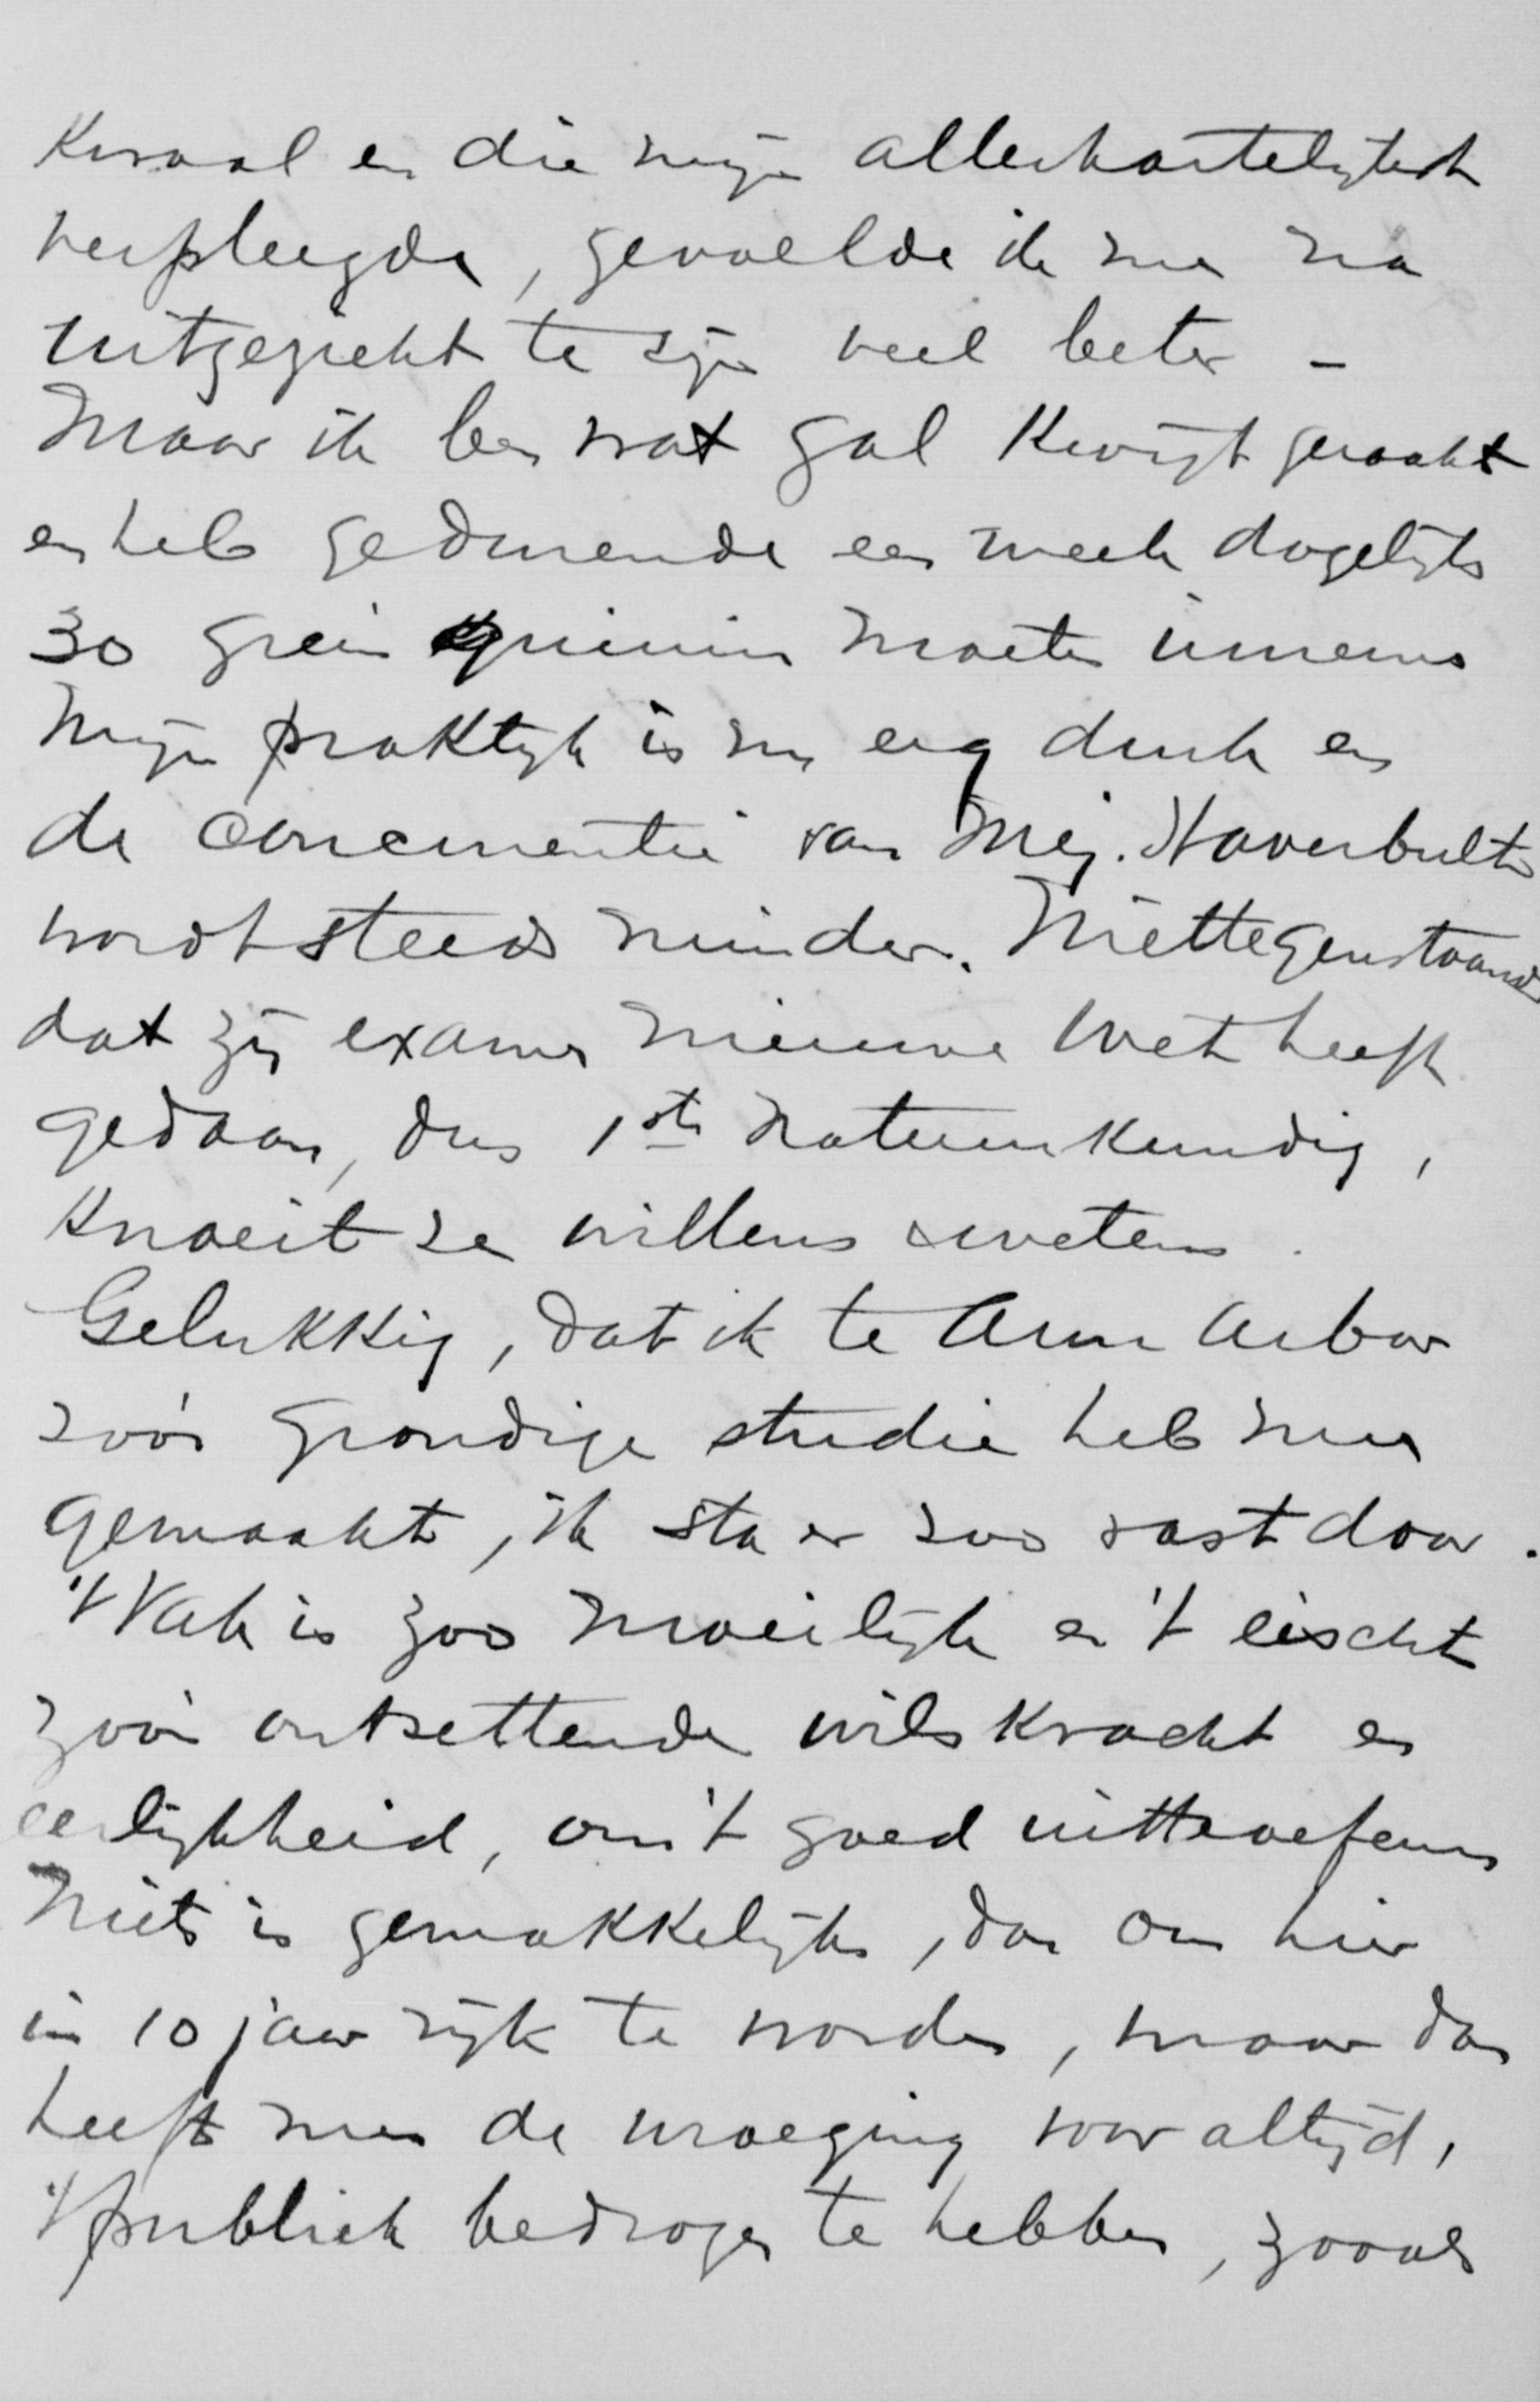 Kwaal en die mijn allerhartelijkst
verpleegde, gevoelde ik me na
uitgeziekt te zijn veel beter -
Maar ik ben wat gal kwijt geraakt
en heb gedurende een week dagelijks
30 grein quinine moeten innemen
Mijn praktijk is nu erg druk en
de concurrentie van Mej. Haverbult
wordt steeds minder. Niettegenstaande
dat zij examen nieuwe wet heeft
gedaan, dus 1ste natuurkundig,
knoeit ze willens & wetens.
Gelukkig, dat ik te Ann Arbor
zoo'n grondige studie heb mee
gemaakt, ik sta er zoo vast door.
't Vak is zoo moeilijk en 't eischt
zoo'n ontzettende wilskracht en
eerlijkheid, om 't goed uitteoefenen
Niets is gemakkelijker, dan om hier
in 10 jaar rijk te worden, maar dan
heeft men de wroeging voor altijd,
't publiek bedrogen te hebben, zooals